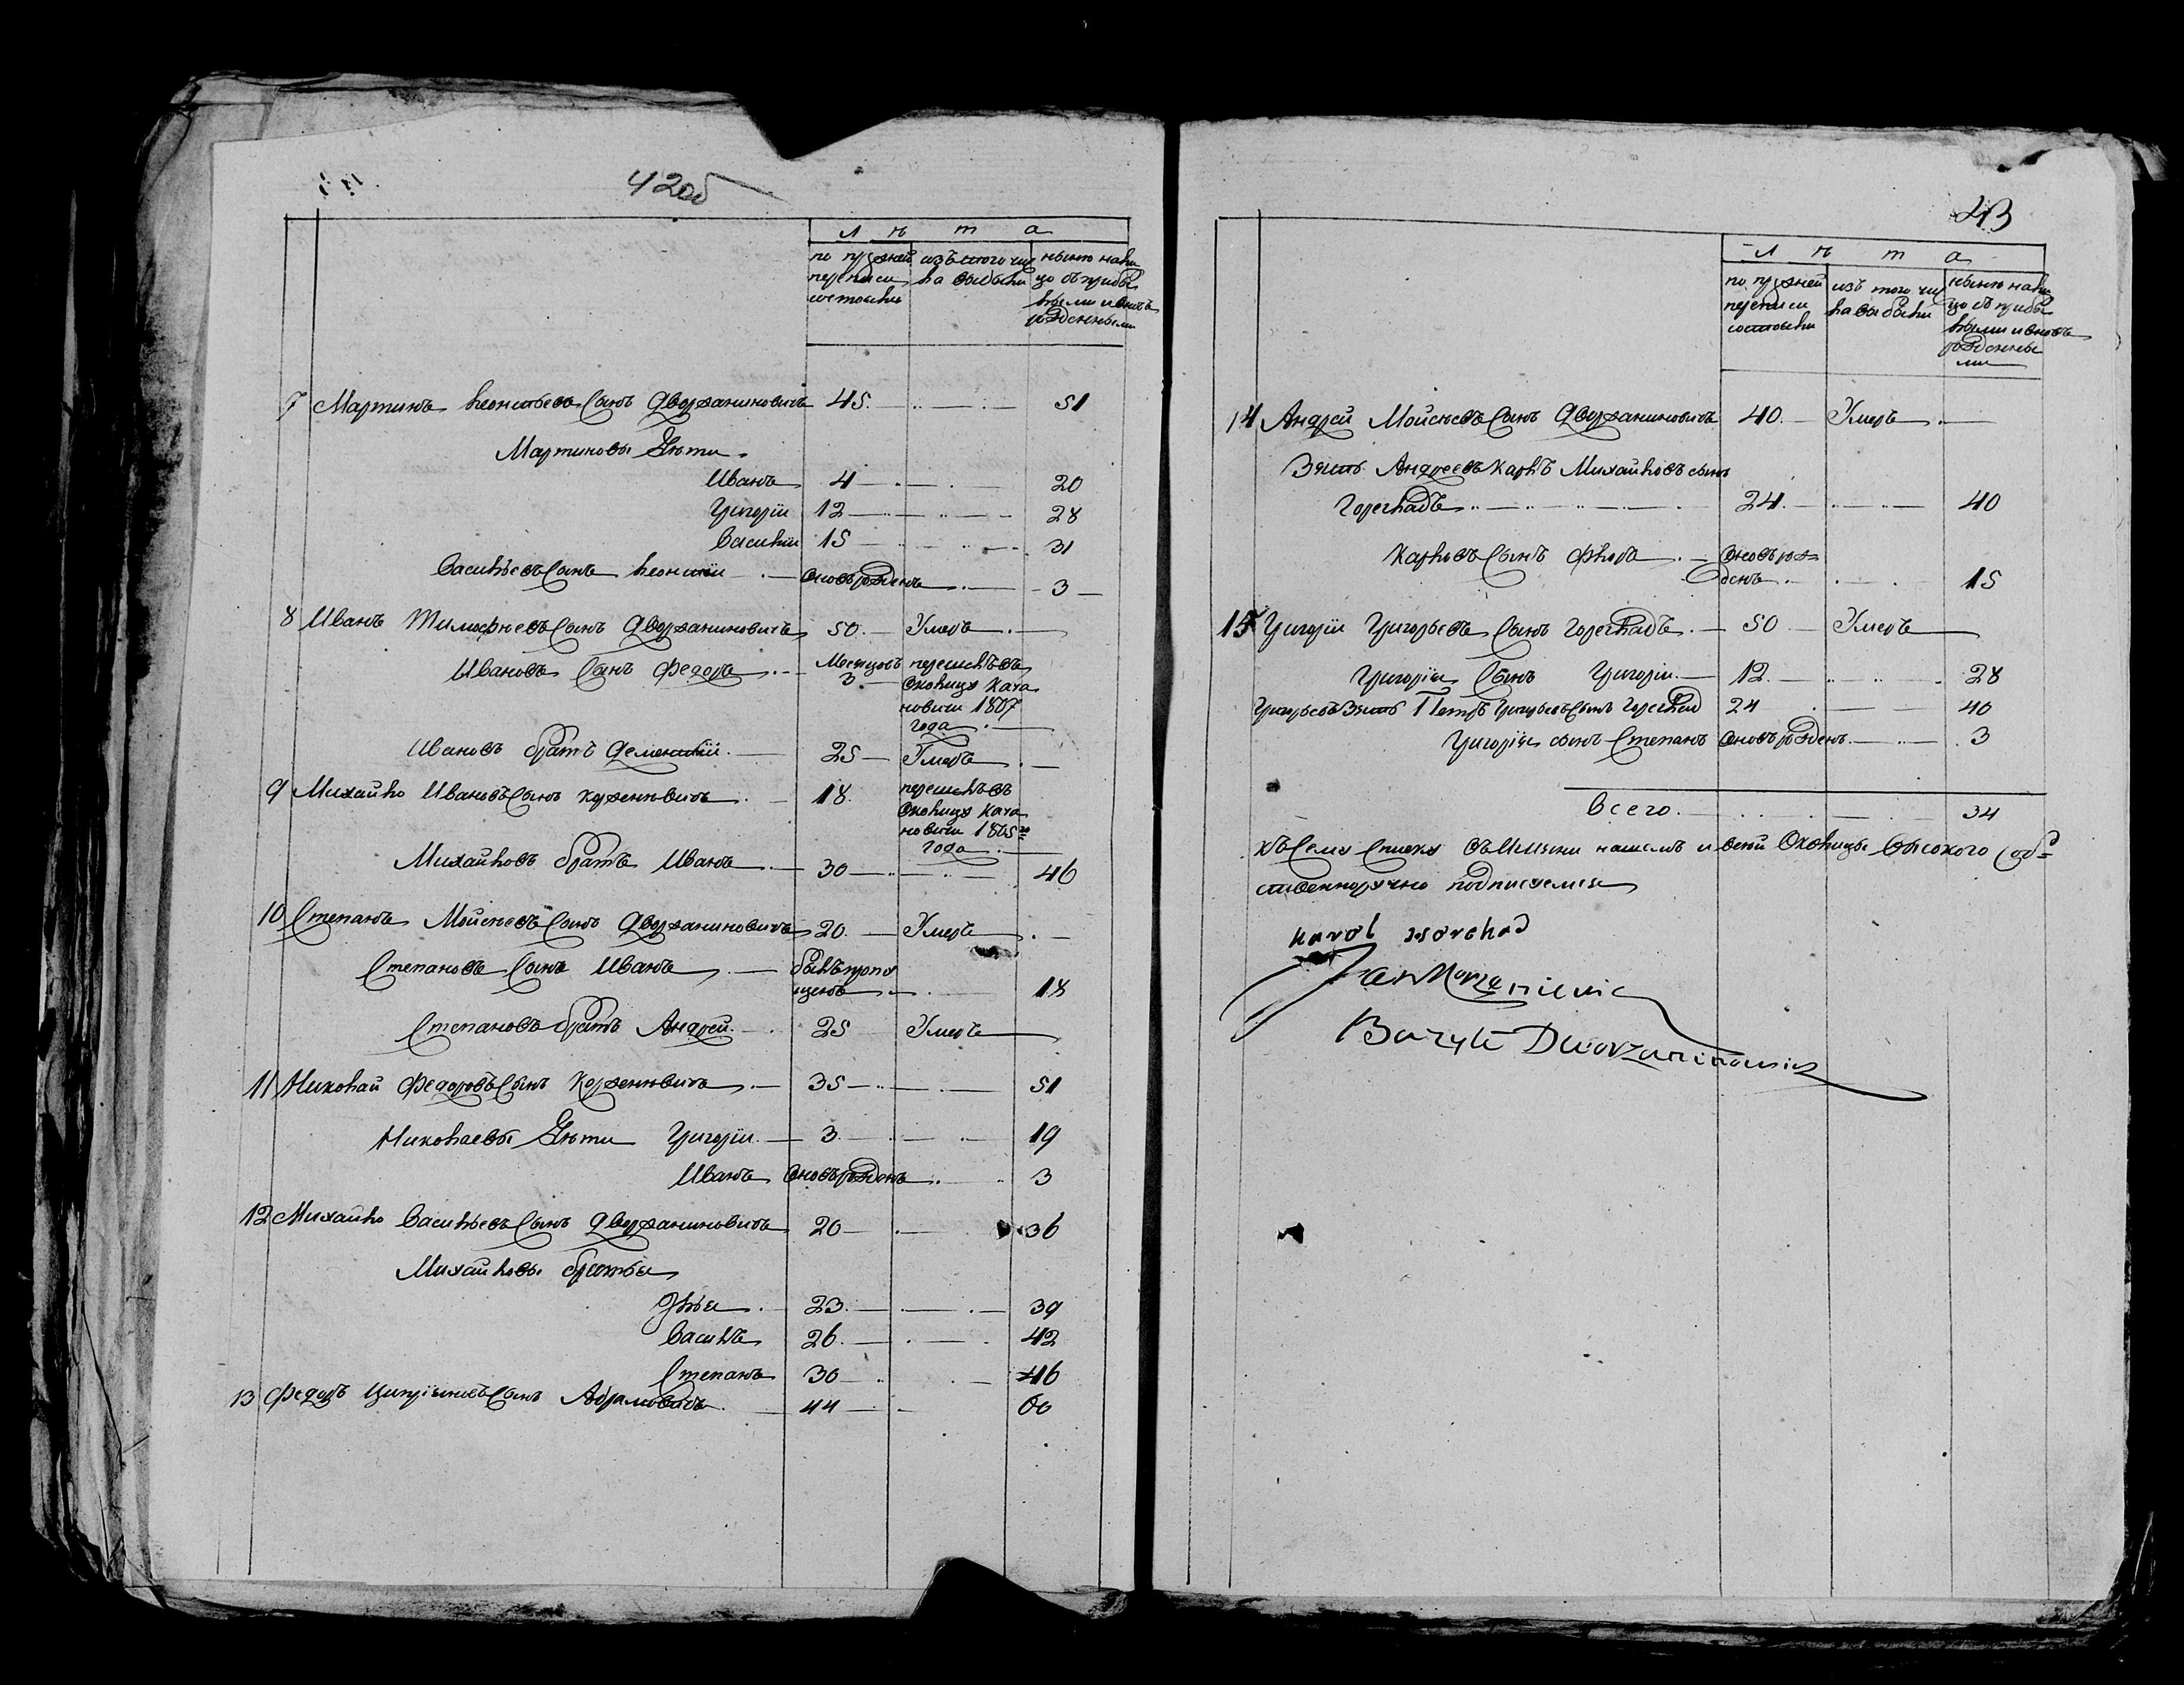 42об
Лѣта
по прежней переписи состояли
изъ того числа выбыли
нынѣ налицо съ прибылыми и вновь рожденными
7 Мартинъ Леонтьевъ Сынъ Дворжаниновичъ 45 51
Мартиновы Дѣти
Иванъ 4 20
Григорiи 12 28
Василiи 15 31
Васильевъ Сынъ Леонтiи вновь рожденъ 3
8 Иванъ Тимофѣевъ Сынъ Дворжаниновичъ 50 Умеръ
Ивановъ Сынъ Федоръ Месяцовъ 3 перешелъ въ Околицу Качановичи 1807 года
Ивановъ братъ Дементiй 25 Умеръ
9 Михайло Ивановъ Сынъ Корженѣвичъ 18 перешелъ въ Околицу Качановичи 1805го года
Михайловъ братъ Иванъ 30 46
10 Степанъ Мойсѣевъ Сынъ Дворжаниновичъ 20 Умеръ
Степановъ Сынъ Иванъ былъ пропущенъ 18
Степановъ братъ Андрей 25 Умеръ
11 Николай Федоровъ Сынъ Корженѣвичъ 35 51
Николаевы Дѣти Григорiи 3 19
Иванъ вновь рожденъ 3
12 Михайло Васильевъ Сынъ Дворжаниновичъ 20 36
Михайловы братья
Илья 23 39
Василь 26 42
Степанъ 30 46
13 Федоръ Циприяновъ Сынъ Абрамовичъ 44 60
43
Лѣта
по прежней переписи состояли
изъ того числа выбыли
нынѣ налицо съ прибылыми и вновь рожденными
14 Андрей Мойсѣевъ Сынъ Дворжаниновичъ 40 Умеръ
Зять Андреевъ Карлъ Михайловъ сынъ
Горегладъ 24 40
Карловъ Сынъ Флоръ вновь рожденъ 15
15 Григорiи Григорьевъ Сынъ Горегладъ 50 Умеръ
Григорiя Сынъ Григорiи 12 28
Григорьевъ Зять Петръ Григорьевъ Сынъ Гореглад 24 40
Григорiя сынъ Степанъ вновь рожденъ 3
Всего 34
Къ Сему Списку въ Имѣни нашемъ и всей Околицы Высокого Соб=
ственноручно подписуемся
Karol Horehlad
Jan Korzeniewic
Bazyli Dworzaninowicz